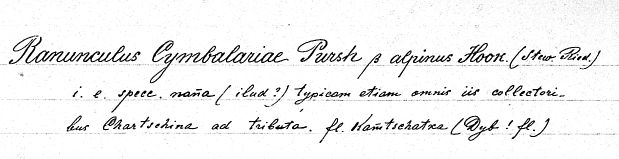 Ranunculus Cymbalariae Pursh β alpinus Hook. (Stew. Ried.)
i. e. specc. nana (ilud?) typicam etiam omnis iis collectori-
bus Chartschina ad tributa. fl. Kamtschatxa (Dyb! fl.)